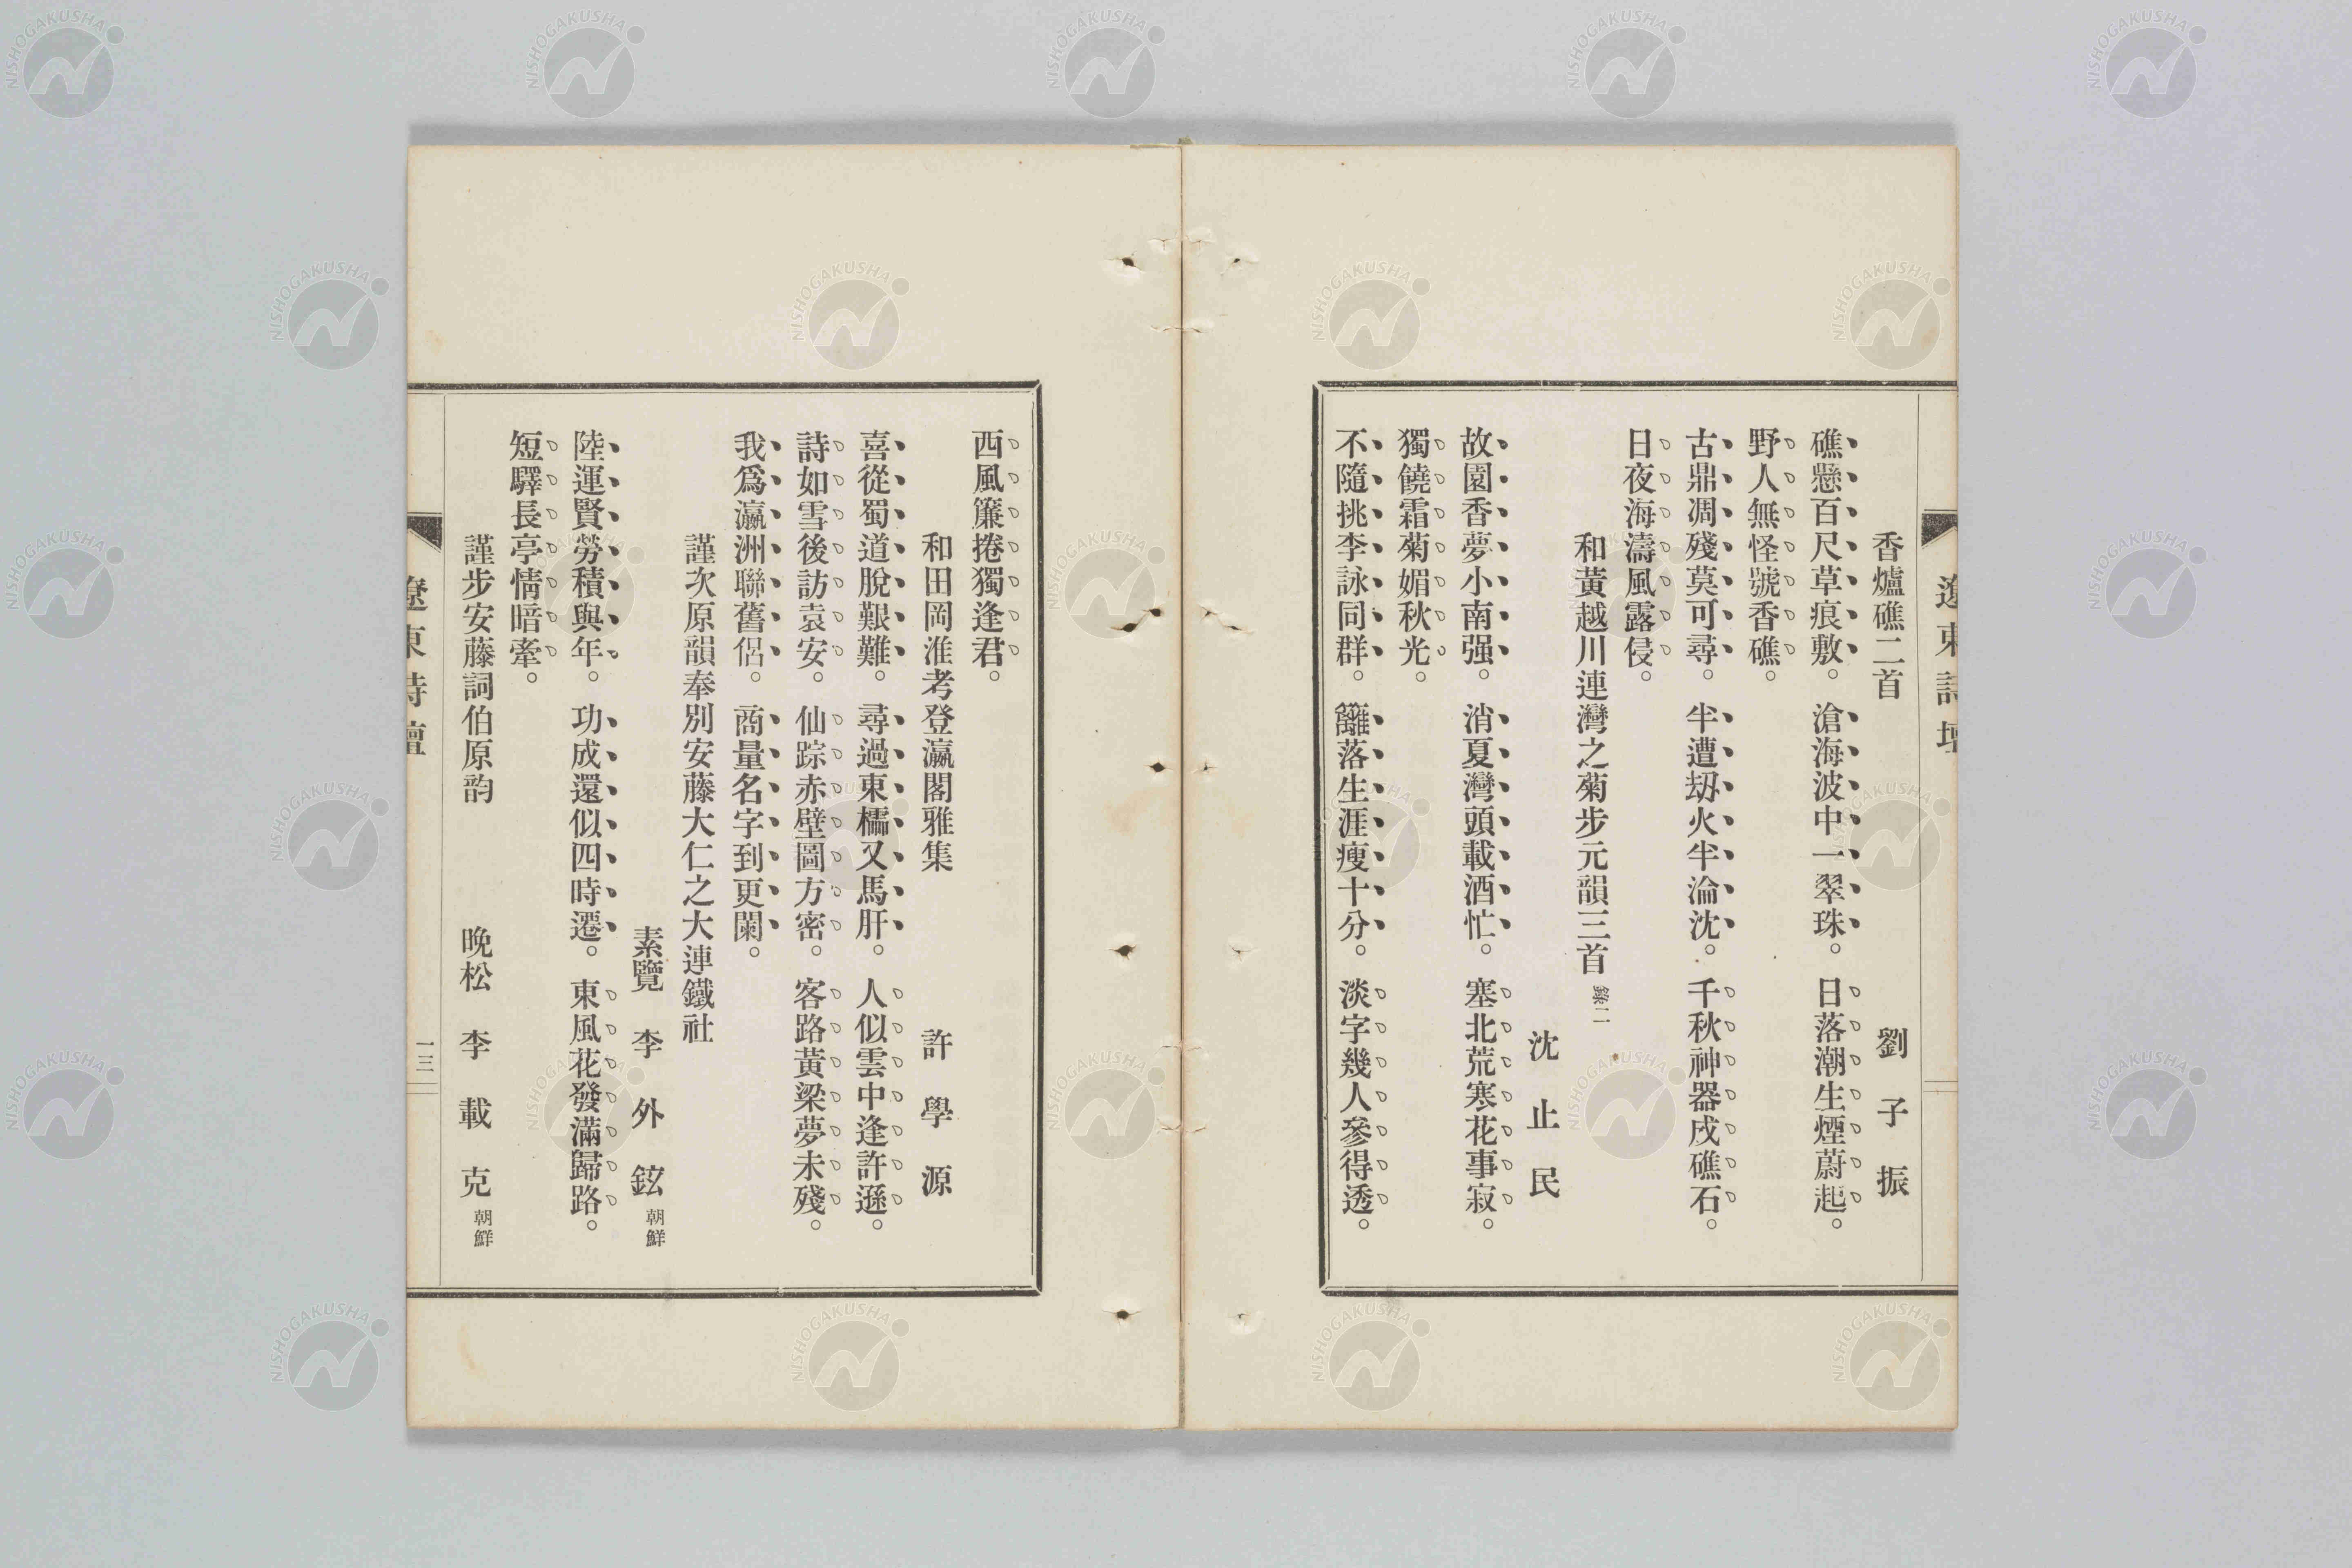 遼東詩壇
香爐礁二首　劉子振
礁懸百尺草痕敷。滄海波中一翠珠。日落潮生煙蔚起。
野人無怪號香礁。
古鼎凋殘莫可尋。半遭刼火半淪沈。千秋神器戍礁石。
日夜海濤風露侵。
和黃越川連灣之菊步元韻三首 錄二
沈止民
故園香夢小南强。消夏灣頭載酒忙。塞北荒寒花事寂。
獨饒霜菊媚秋光。
不隨挑李詠同群。籬落生涯瘦十分。淡字幾人參得透。
西風簾捲獨逢君。
和田岡淮考登瀛閣雅集　許學源
喜從蜀道脫艱難。尋過東檽又馬肝。人似雲中逢許遜。
詩如雪後訪袁安。仙踪赤壁圖方密。客路黃梁夢未殘。
我爲瀛洲聯舊侶。商量名字到更闌。
謹次原韻奉別安藤大仁之大連鐵社
素覽　李外鉉 朝鮮
陸運賢勞積與年。功成還似四時遷。東風花發滿歸路。
短驛長亭情暗牽。
謹步安藤詞伯原韵　晩松　李載克 朝鮮
遼東詩壇
一三
NISHOGAKUSHA